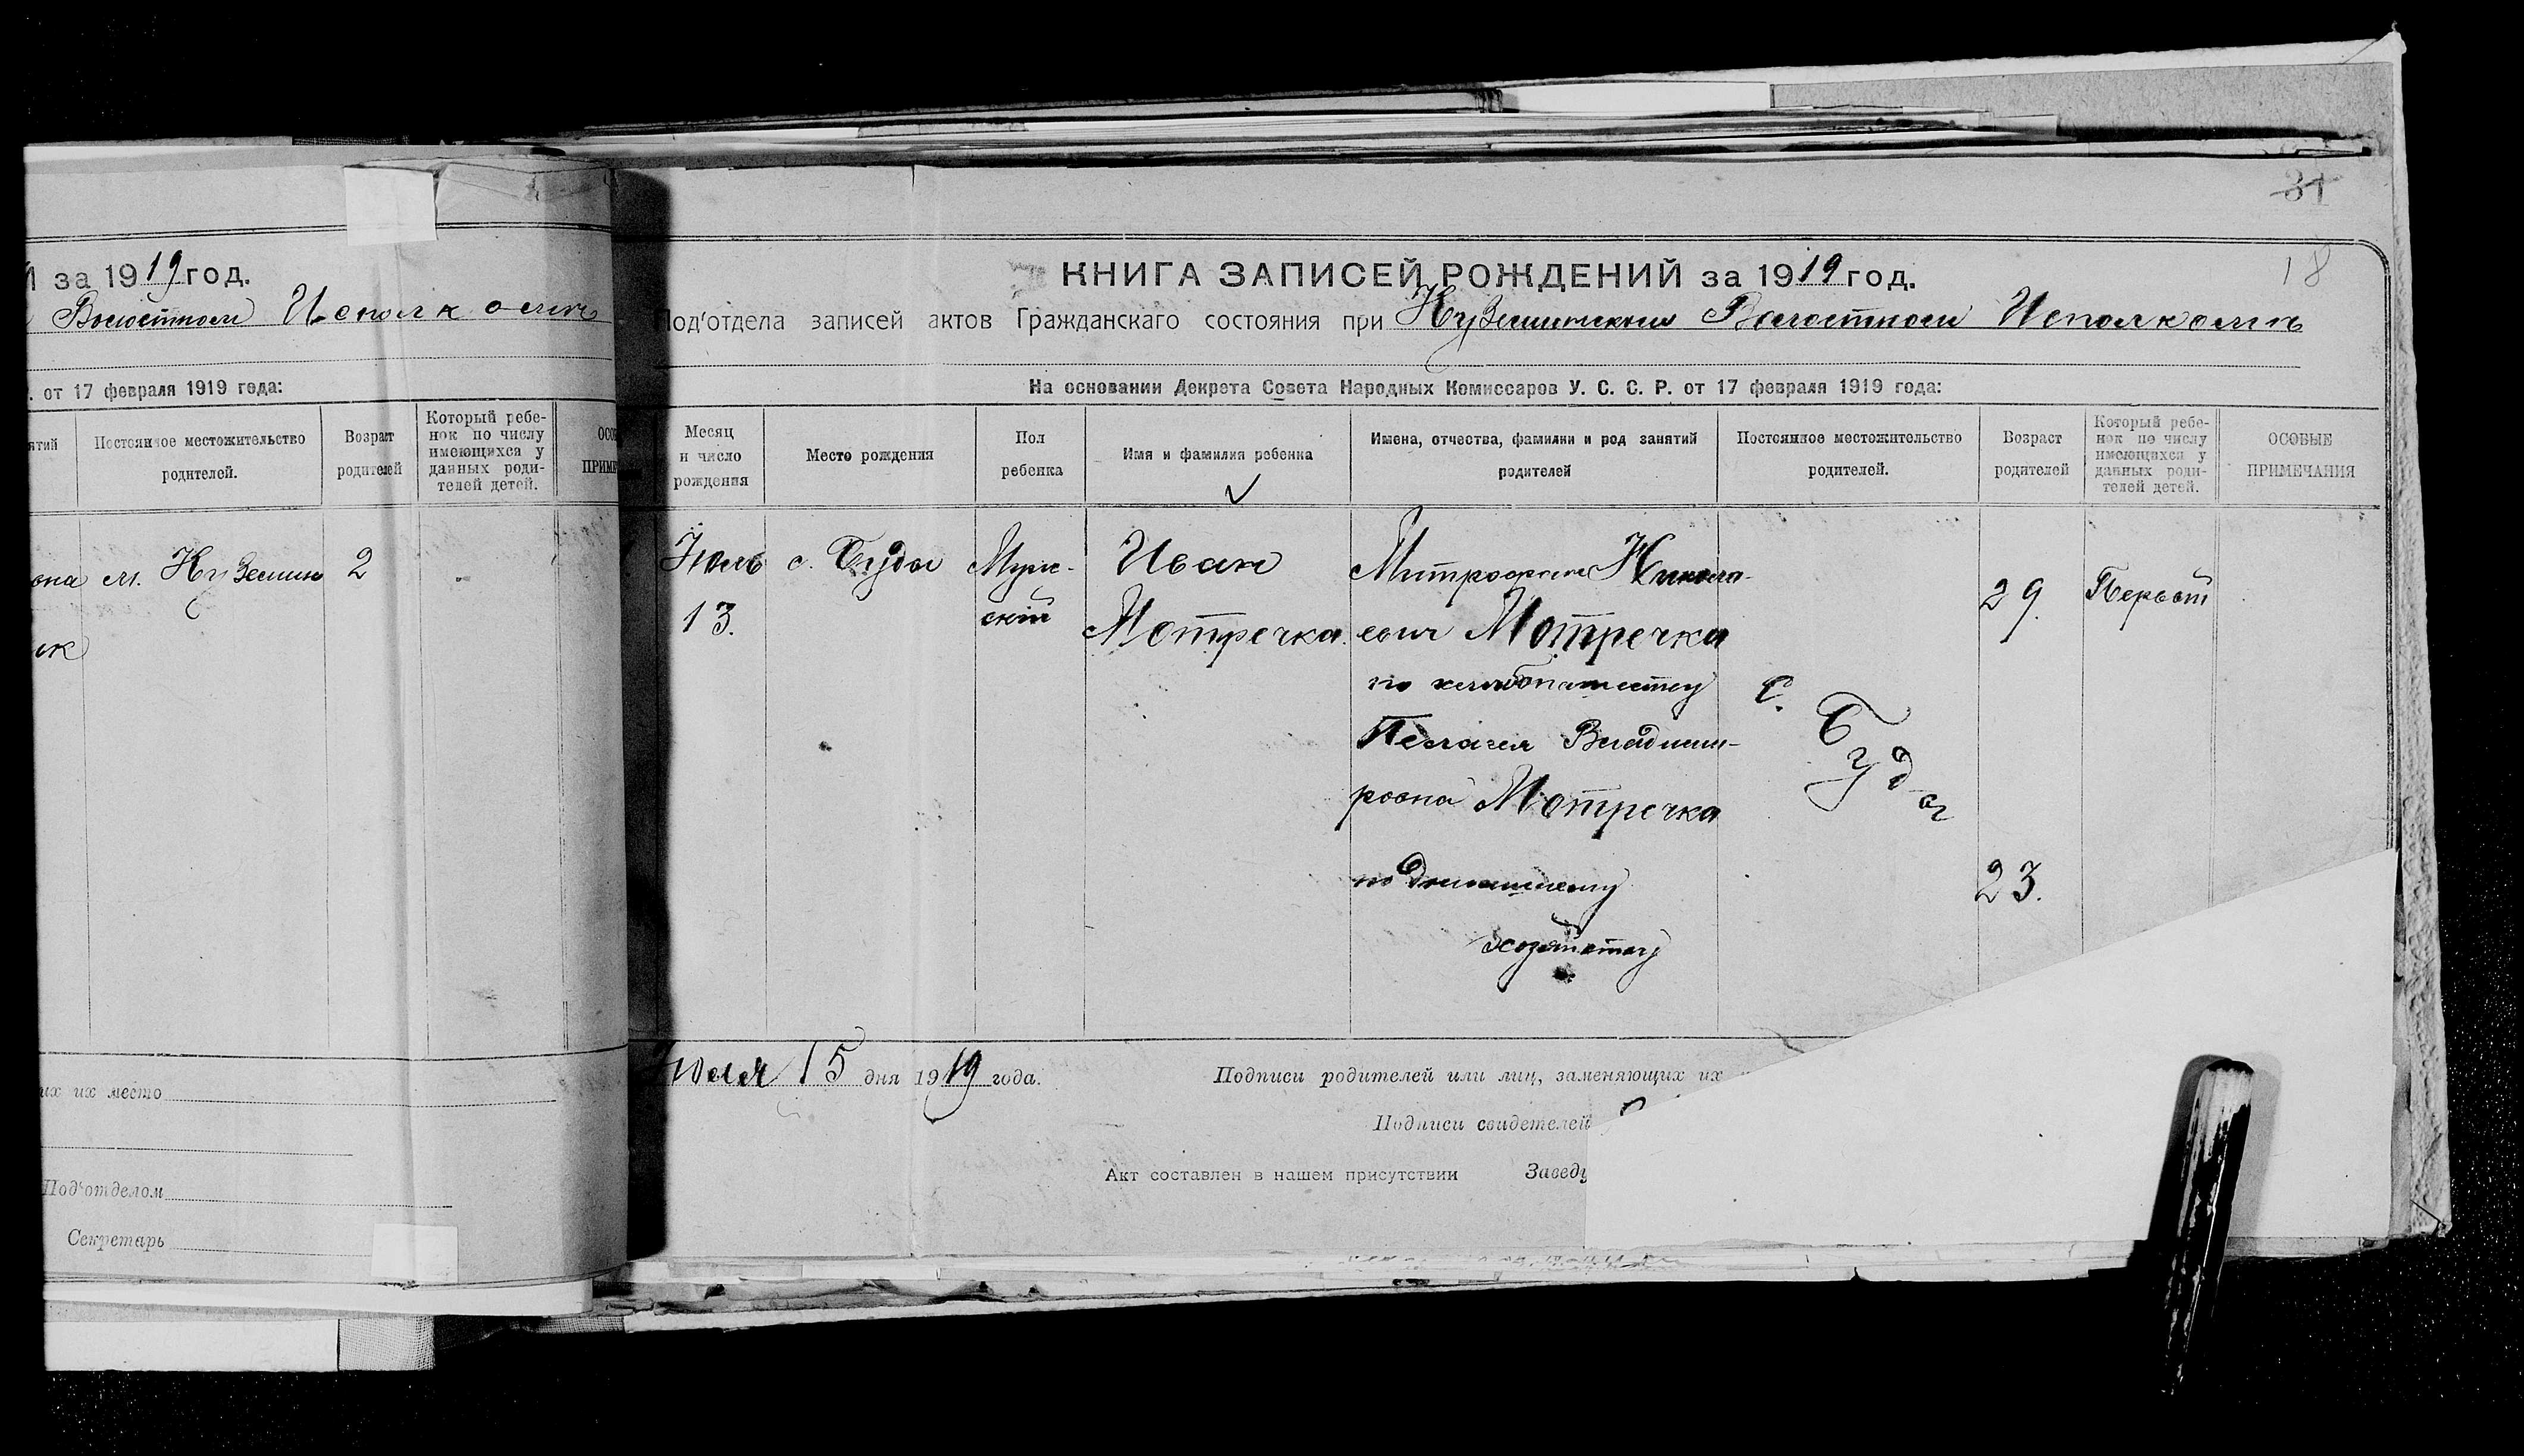 31
18
за 1919 год.
Волостном Исполкоме
от 17 февраля 1919 года:
Постоянное местожительство родителей.
Возраст родителей
Который ребе-
нок по числу
имеющихся у
данных роди-
телей детей.
м. Куземин
2
их их место
Под'отделом
Секретарь
КНИГА ЗАПИСЕЙ РОЖДЕНИЙ за 1919 год.
Под'отдела записей актов Гражданскаго состояния при Куземинском Волостном Исполкоме
На основании Декрета Совета Народных Комиссаров У. С. С. Р. от 17 февраля 1919 года:
Месяц
и число
рождения
Место рождения
Пол
ребенка
Имя и фамилия ребенка
Имена, отчества, фамилии и род занятий
родителей
Постоянное местожительство
родителей.
Возраст
родителей
Который ребе-
нок по числу
имеющихся у
данных роди-
телей детей.
ОСОБЫЕ
ПРИМЕЧАНИЯ
Июль
13.
с. Буда
Муж-
ской
Иван
Мотречка
Митрофан Никола-
евич Мотречка
по хлебопашеству
Пелагея Владими-
ровна Мотречка
по домашнему
хозяйству
с.
Буда
29.
23.
Первый
Июля 15 дня 1919 года.
Подписи родителей или лиц, заменяющих их
Подписи свидетелей
Акт составлен в нашем присутствии